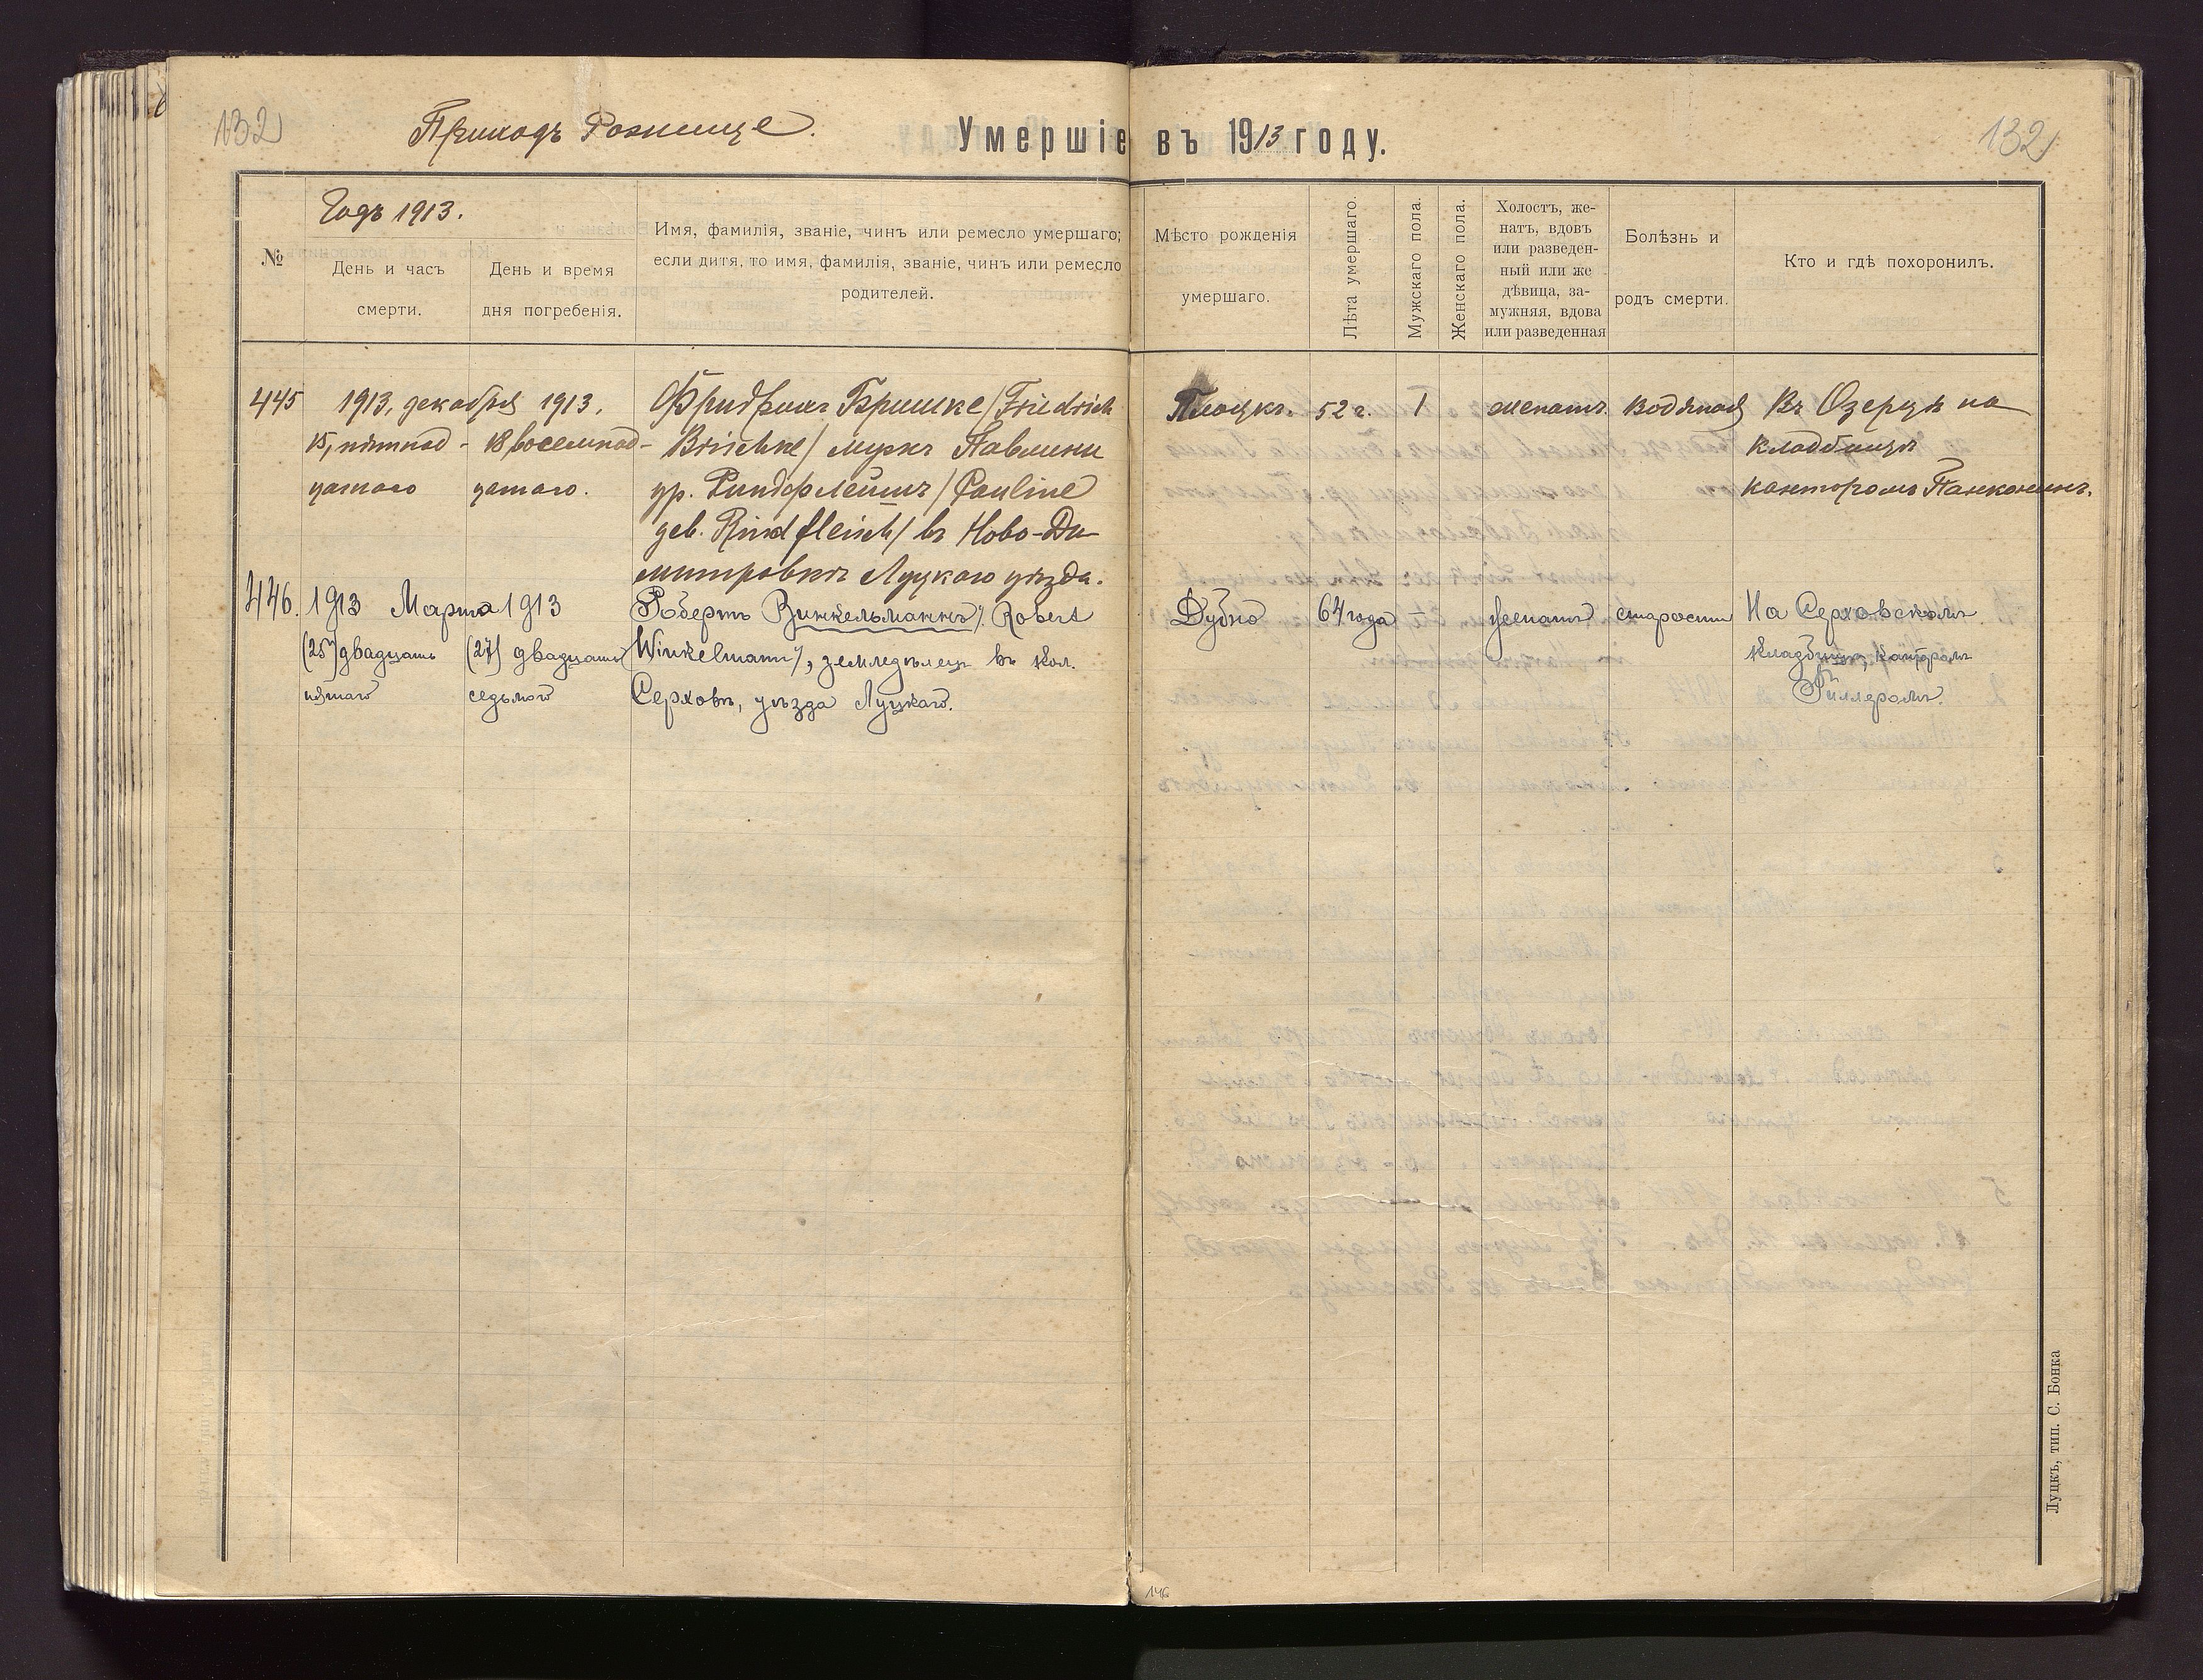 132
Приходъ Рожище.
Умершіе въ 1913 году.
132
№
Годъ 1913.
День и часъ
смерти.
День и время
дня погребенія.
Имя, фамилія, званіе, чинъ или ремесло умершаго;
если дитя, то имя, фамилія, званіе, чинъ или ремесло
родителей.
Мѣсто рожденія
умершаго.
Лѣта умершаго.
Мужскаго пола.
Женскаго пола.
Холостъ, же-
натъ, вдовъ
или разведен-
ный или же
дѣвица, за-
мужняя, вдова
или разведенная
Болѣзнь и
родъ смерти.
Кто и гдѣ похоронилъ.
445
1913, декабря
15, пятнад-
цатаго
1913.
18, восемнад-
цатаго.
Фридрихъ Бришке /Friedrich
Brischke/ мужъ Павлины
ур. Риндфлейшъ /Pauline
geb. Rindfleisch/ въ Ново-Ди-
митровкѣ Луцкаго уѣзда.
Плоцкъ.
52 г.
1
женатъ
водяная
Въ Озерцѣ на
кладбищѣ
канторомъ Панконинъ.
446.
1913 Марта
(25) двадцать
пятаго
1913
(27) двадцать
седьмого
Робертъ Винкельманнъ /Robert
Winkelmann/, земледѣлецъ въ кол.
Серховъ, уѣзда Луцкаго.
Дубно
64 года
1
женатъ
старости
На Серховскомъ
кладбищѣ, канторомъ
Гиллеромъ.
Луцкъ, тип. С. Бонка
146